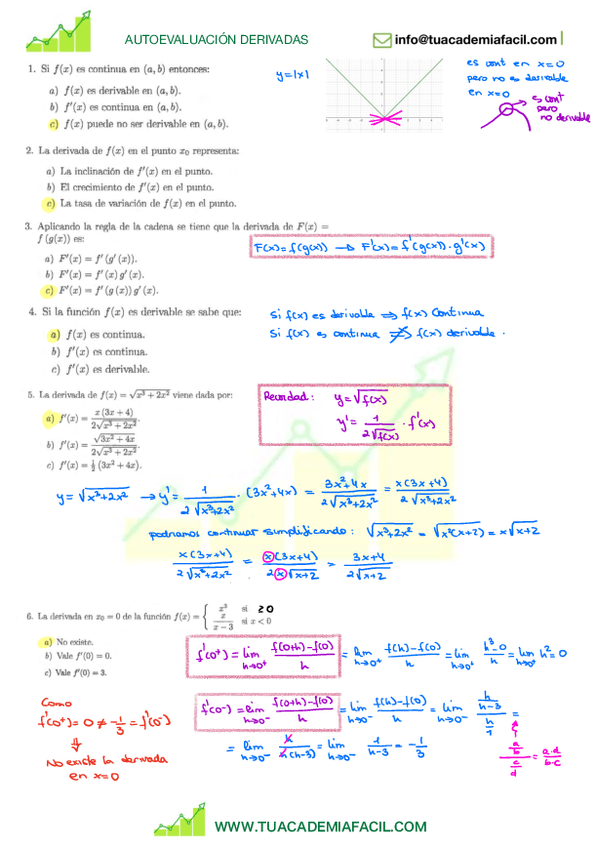 AUTOEVALUACIÓN DERIVADAS
info@tuacademiafacil.com
1. Si f(x) es continua en (a, b) entonces:
a) f(x) es derivable en (a, b).
b) f'(x) es continua en (a, b).
c) f(x) puede no ser derivable en (a, b).
y=|x|
es cont en x=0
pero no es derivable
en x=0
es cont
pero
no derivable
2. La derivada de f(x) en el punto x₀ representa:
a) La inclinación de f'(x) en el punto.
b) El crecimiento de f'(x) en el punto.
c) La tasa de variación de f(x) en el punto.
3. Aplicando la regla de la cadena se tiene que la derivada de F(x) =
f (g(x)) es:
a) F'(x) = f' (g' (x)).
b) F'(x) = f' (x) g' (x).
c) F'(x) = f' (g (x)) g' (x).
F(x)=f(g(x)) → F'(x)=f'(g(x))·g'(x)
4. Si la función f(x) es derivable se sabe que:
a) f(x) es continua.
b) f'(x) es continua.
c) f'(x) es derivable.
Si f(x) es derivable ⇒ f(x) Continua
Si f(x) es continua ⇏ f(x) derivable.
5. La derivada de f(x) = √(x³ + 2x²) viene dada por:
a) f'(x) = x(3x + 4) / 2√(x³ + 2x²).
b) f'(x) = √(3x² + 4x) / 2√(x³ + 2x²).
c) f'(x) = ½ (3x² + 4x).
Recordad: y=√f(x)
y'= 1/(2√f(x)) · f'(x)
y=√(x³+2x²) → y'= 1/(2√(x³+2x²)) · (3x²+4x) = (3x²+4x)/(2√(x³+2x²)) = x(3x+4)/(2√(x³+2x²))
podríamos continuar simplificando: √(x³+2x²) = √(x²(x+2)) = x√(x+2)
x(3x+4)/(2√(x³+2x²)) = x(3x+4)/(2x√(x+2)) = (3x+4)/(2√(x+2))
6. La derivada en x₀ = 0 de la función f(x) = { x³ si ≥0
x/(x − 3) si x < 0
a) No existe.
b) Vale f'(0) = 0.
c) Vale f'(0) = 3.
f'(0⁺) = lim h→0⁺ (f(0+h)-f(0))/h = lim h→0⁺ (f(h)-f(0))/h = lim h→0⁺ (h³-0)/h = lim h→0⁺ h² = 0
f'(0⁻) = lim h→0⁻ (f(0+h)-f(0))/h = lim h→0⁻ (f(h)-f(0))/h = lim h→0⁻ (h/(h-3))/(h/1) =
= lim h→0⁻ h/(h(h-3)) = lim h→0⁻ 1/(h-3) = -1/3
(a/b)/(c/d) = (a·d)/(b·c)
Como
f'(0⁺) = 0 ≠ -1/3 = f'(0⁻)
⇓
No existe la derivada
en x=0
WWW.TUACADEMIAFACIL.COM